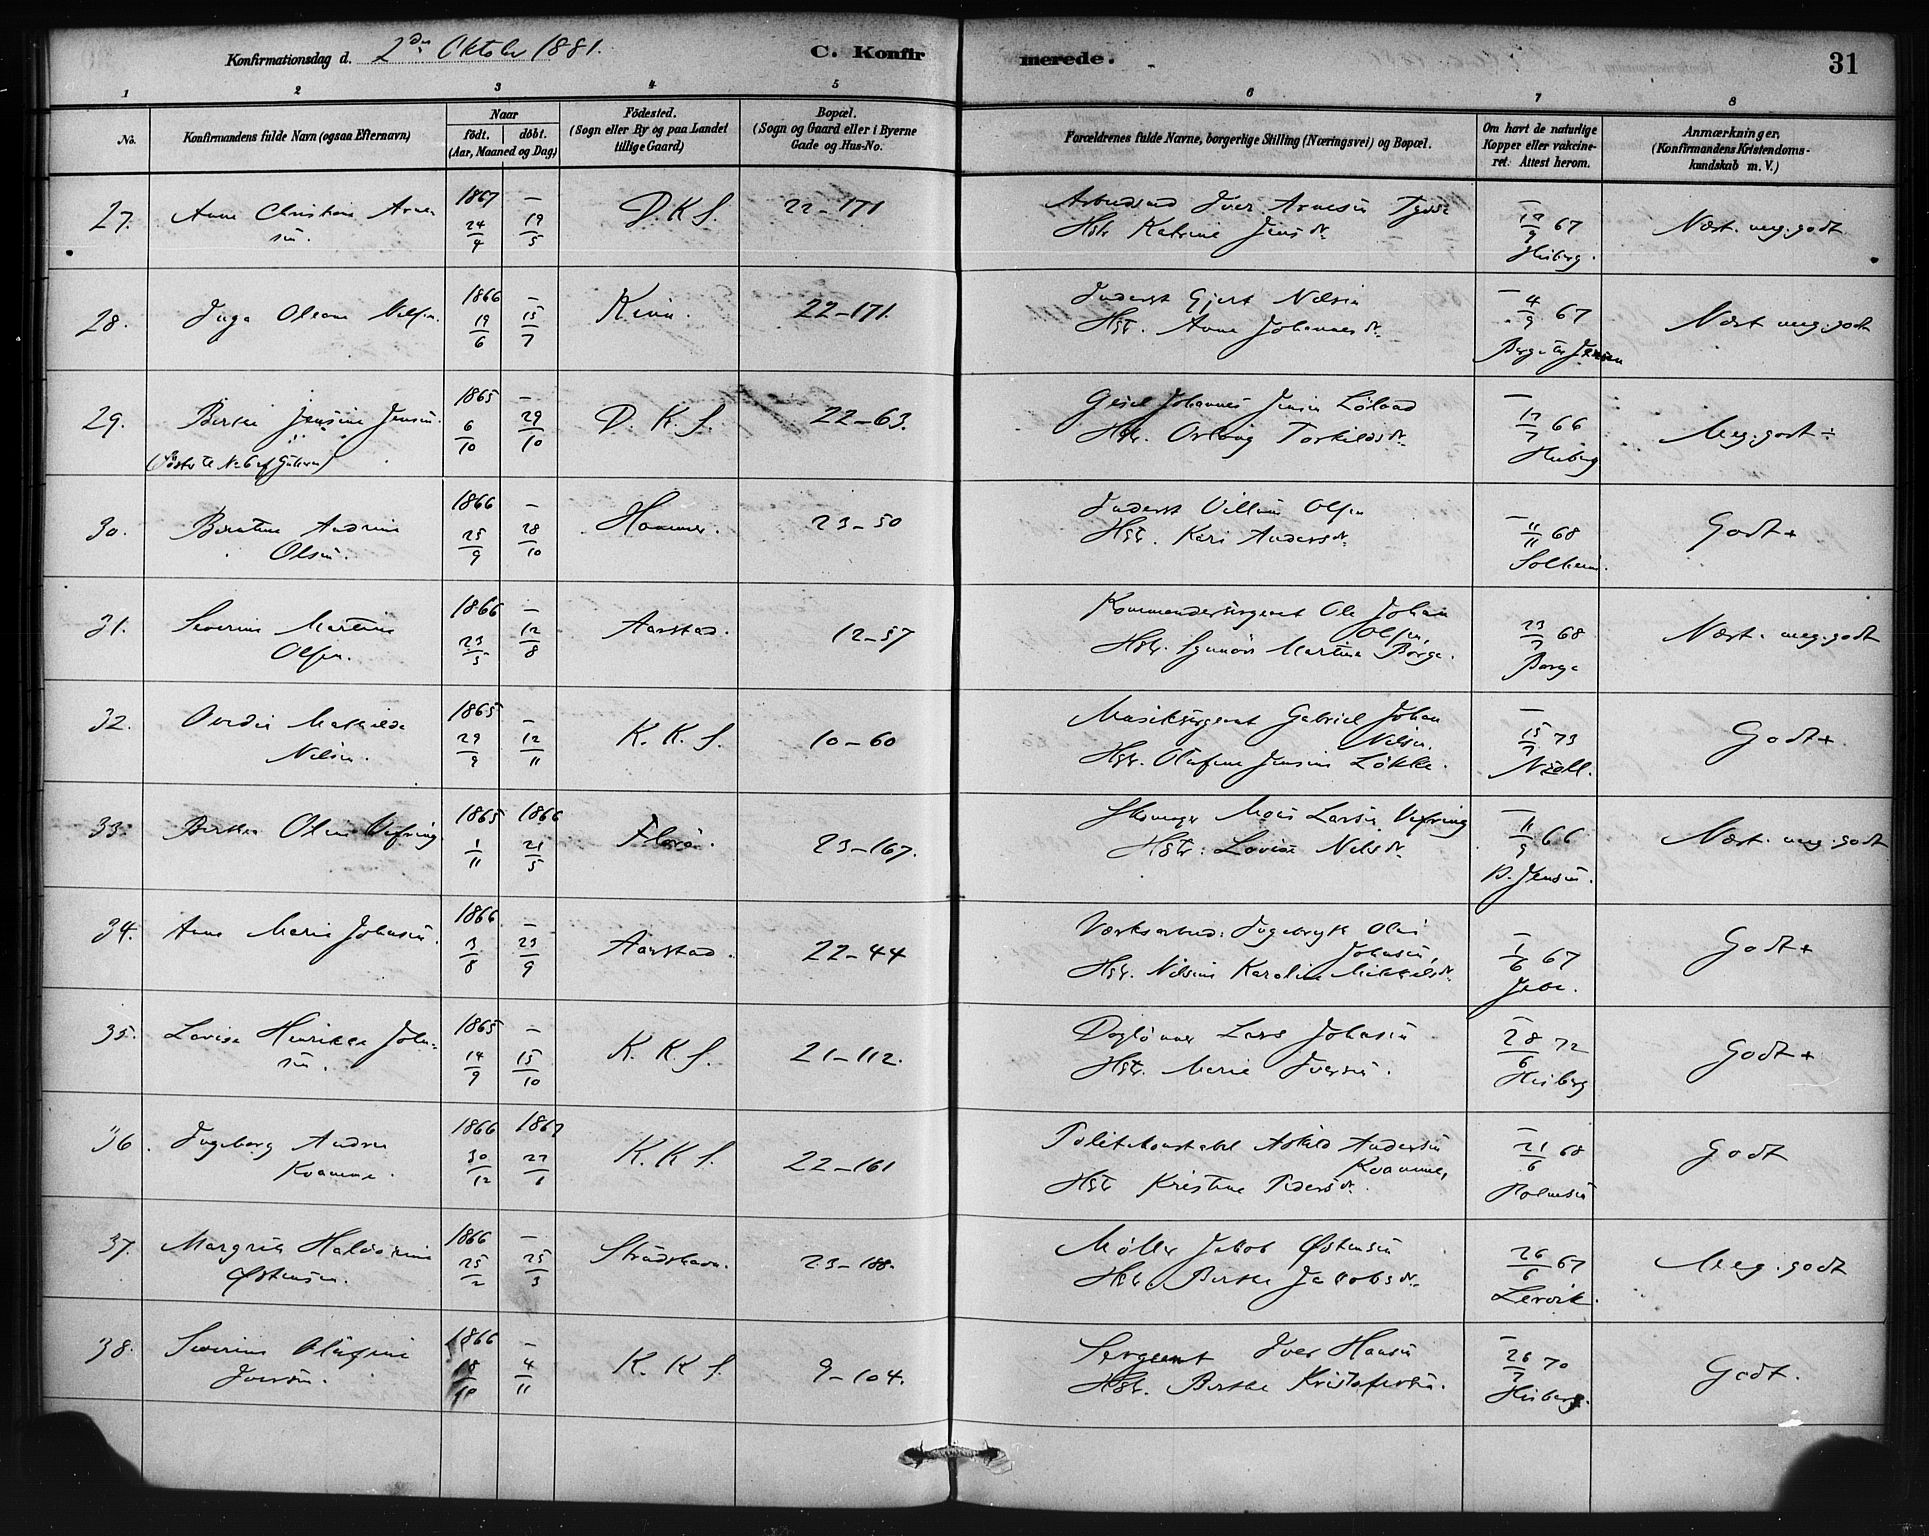 Konfirmationsdag d. 2den Oktober 1881.
C. Konfirmerede.
31
1 2 3 4 5 6 7 8
No.
Konfirmandens fulde Navn (ogsaa Efternavn)
Naar
født. døbt.
(Aar, Maaned og Dag)
Fødested.
(Sogn eller By og paa Landet
tillige Gaard)
Bopæl.
(Sogn og Gaard eller i Byerne
Gade og Hus-No.
Forældrenes fulde Navne, borgerlige Stilling (Næringsvei) og Bopæl.
Om havt de naturlige
Kopper eller vakcine-
ret. Attest herom.
Anmærkninger,
(Konfirmandens Kristendoms-
kundskab m. V.)
27. 1867 —
24/4 19/5
D. K. S. 22-171
Iver Arnesen
Hstr Katrine Jensdr.
— 12/9 67
Heiberg.
Næst. meg. godt
28. Inga Oleane Nilsen. 1866 —
19/6 15/7
Kinn. 22-171.
Inderst Gjert Nilsen
Hstr. Anne Johannesdr.
— 4/9 67
Jensen
Næst meg. godt
29. Berthe Jensine Jensen. 1865 —
6/10 29/10
D. K. S. 22-63.
Johannes Jensen
Hstr. Torkildsdr.
— 12/7 66
Heiberg
Meg. godt ÷
30. Andrine
Olsen. 1866 —
25/9 28/10
Hammer. 23-50
Inderst Villum Olsen
Hstr. Kari Andersdr.
— 11/11 68
Solheim.
Godt +
31. Severine Martine
Olsen. 1866 —
23/5 12/8
Aarstad. 12-57
Kommandersergeant Ole Johan
Olsen,
Hstr. Synnøve Martine Borge.
23/7 68
Borge
Næst. meg. godt
32. Mathilde
Nilsen. 1865 —
29/9 12/11
K. K. S. 10-60
Musiksergeant Gabriel Johan
Nilsen.
Hstr. Olufine Jensine Løkke.
— 15/7 73
Godt +
33. Berthe Oline Vefring 1865 1866
1/11 21/5
Florø. 23-167.
Skomager Mons Larsen Vefring
Hstr. Lovise Nilsdr.
— 11/9 66
B. Jensen.
Næst. meg. godt
34. Anne Marie Johnsen. 1866 —
3/8 23/9
Aarstad. 22-44
Værksarbeid. Ingebrigt Olai
Johnsen,
Hstr. Nilsine Karoline Mikkelsdr.
— 1/6 67
Godt +
35. Lovise Henrikke John-
sen. 1865 —
14/9 15/10
K. K. S. 21-112.
Daglønner Lars Johnsen
Hstr. Marie Iversen.
— 28/6 72
Heiberg
Godt +
36. Ingeborg Andrea
Kvamme. 1866 1867
30/12 27/1
K. K. S. 22-161
Politikonstabel Askild Andersen
Kvamme,
Hstr Kristine Pedersdr.
— 21/6 68
Godt
37. Margrete Halvorine
Østensen. 1866 —
25/2 25/3
Strudshavn. 23-188.
Møller Jakob Østensen
Hstr Berthe Jakobsdr.
26/6 67
Lervik.
Meg. godt
38. Severine Olufine
Iversen. 1866 —
4/11
K. K. S. 9-104.
Sergeant Iver Hansen
Hstr. Berthe Kristofersen.
— 26/7 70
Heiberg.
Godt.